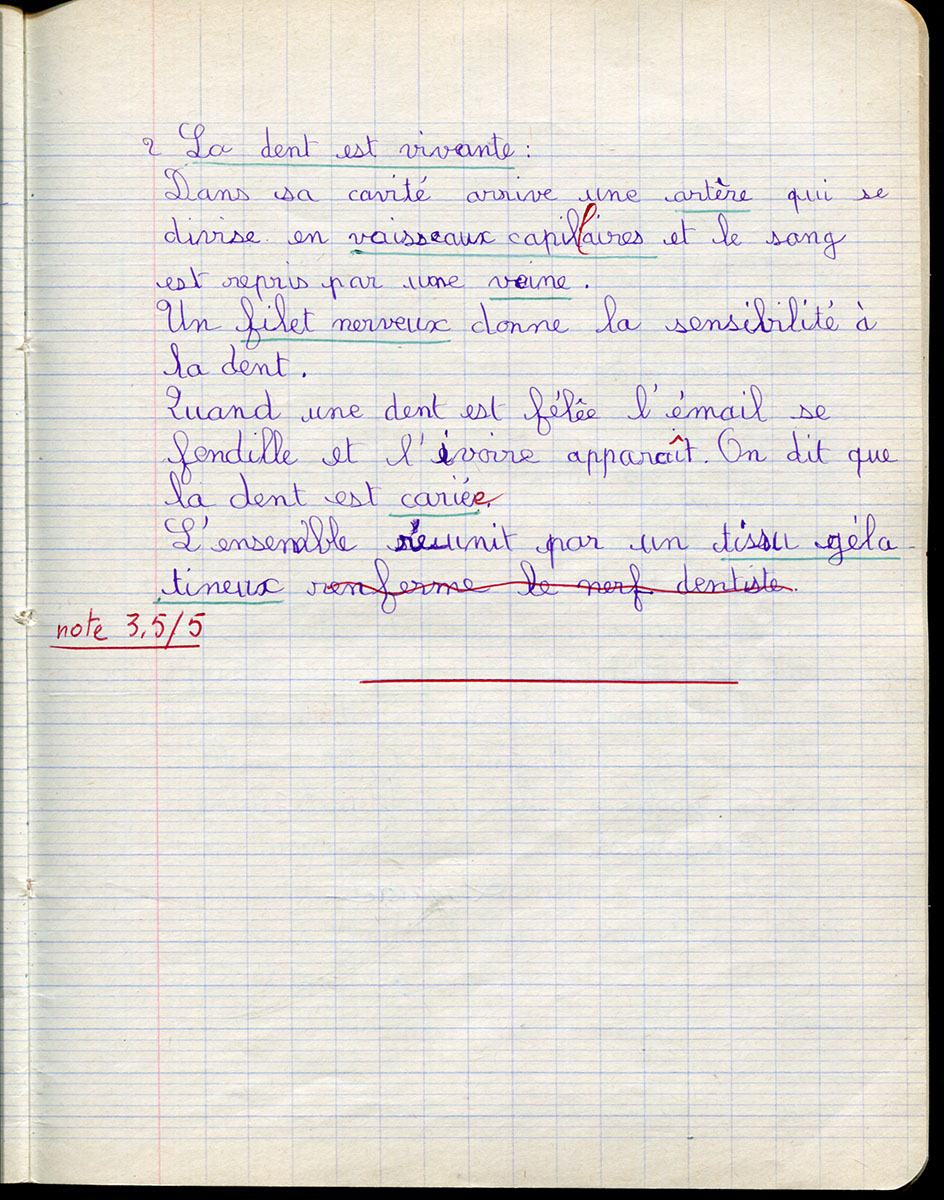 2 La dent est vivante :
Dans sa cavité arrive une artère qui se
divise en vaisseaux capillaires et le sang
est repris par une veine.
Un filet nerveux donne la sensibilité à
la dent.
Quand une dent est fêlée l'émail se
fendille et l'ivoire apparaît. On dit que
la dent est cariée.
L'ensemble réunit par un tissu géla-
tineux renferme le nerf dentiste.
note 3,5/5